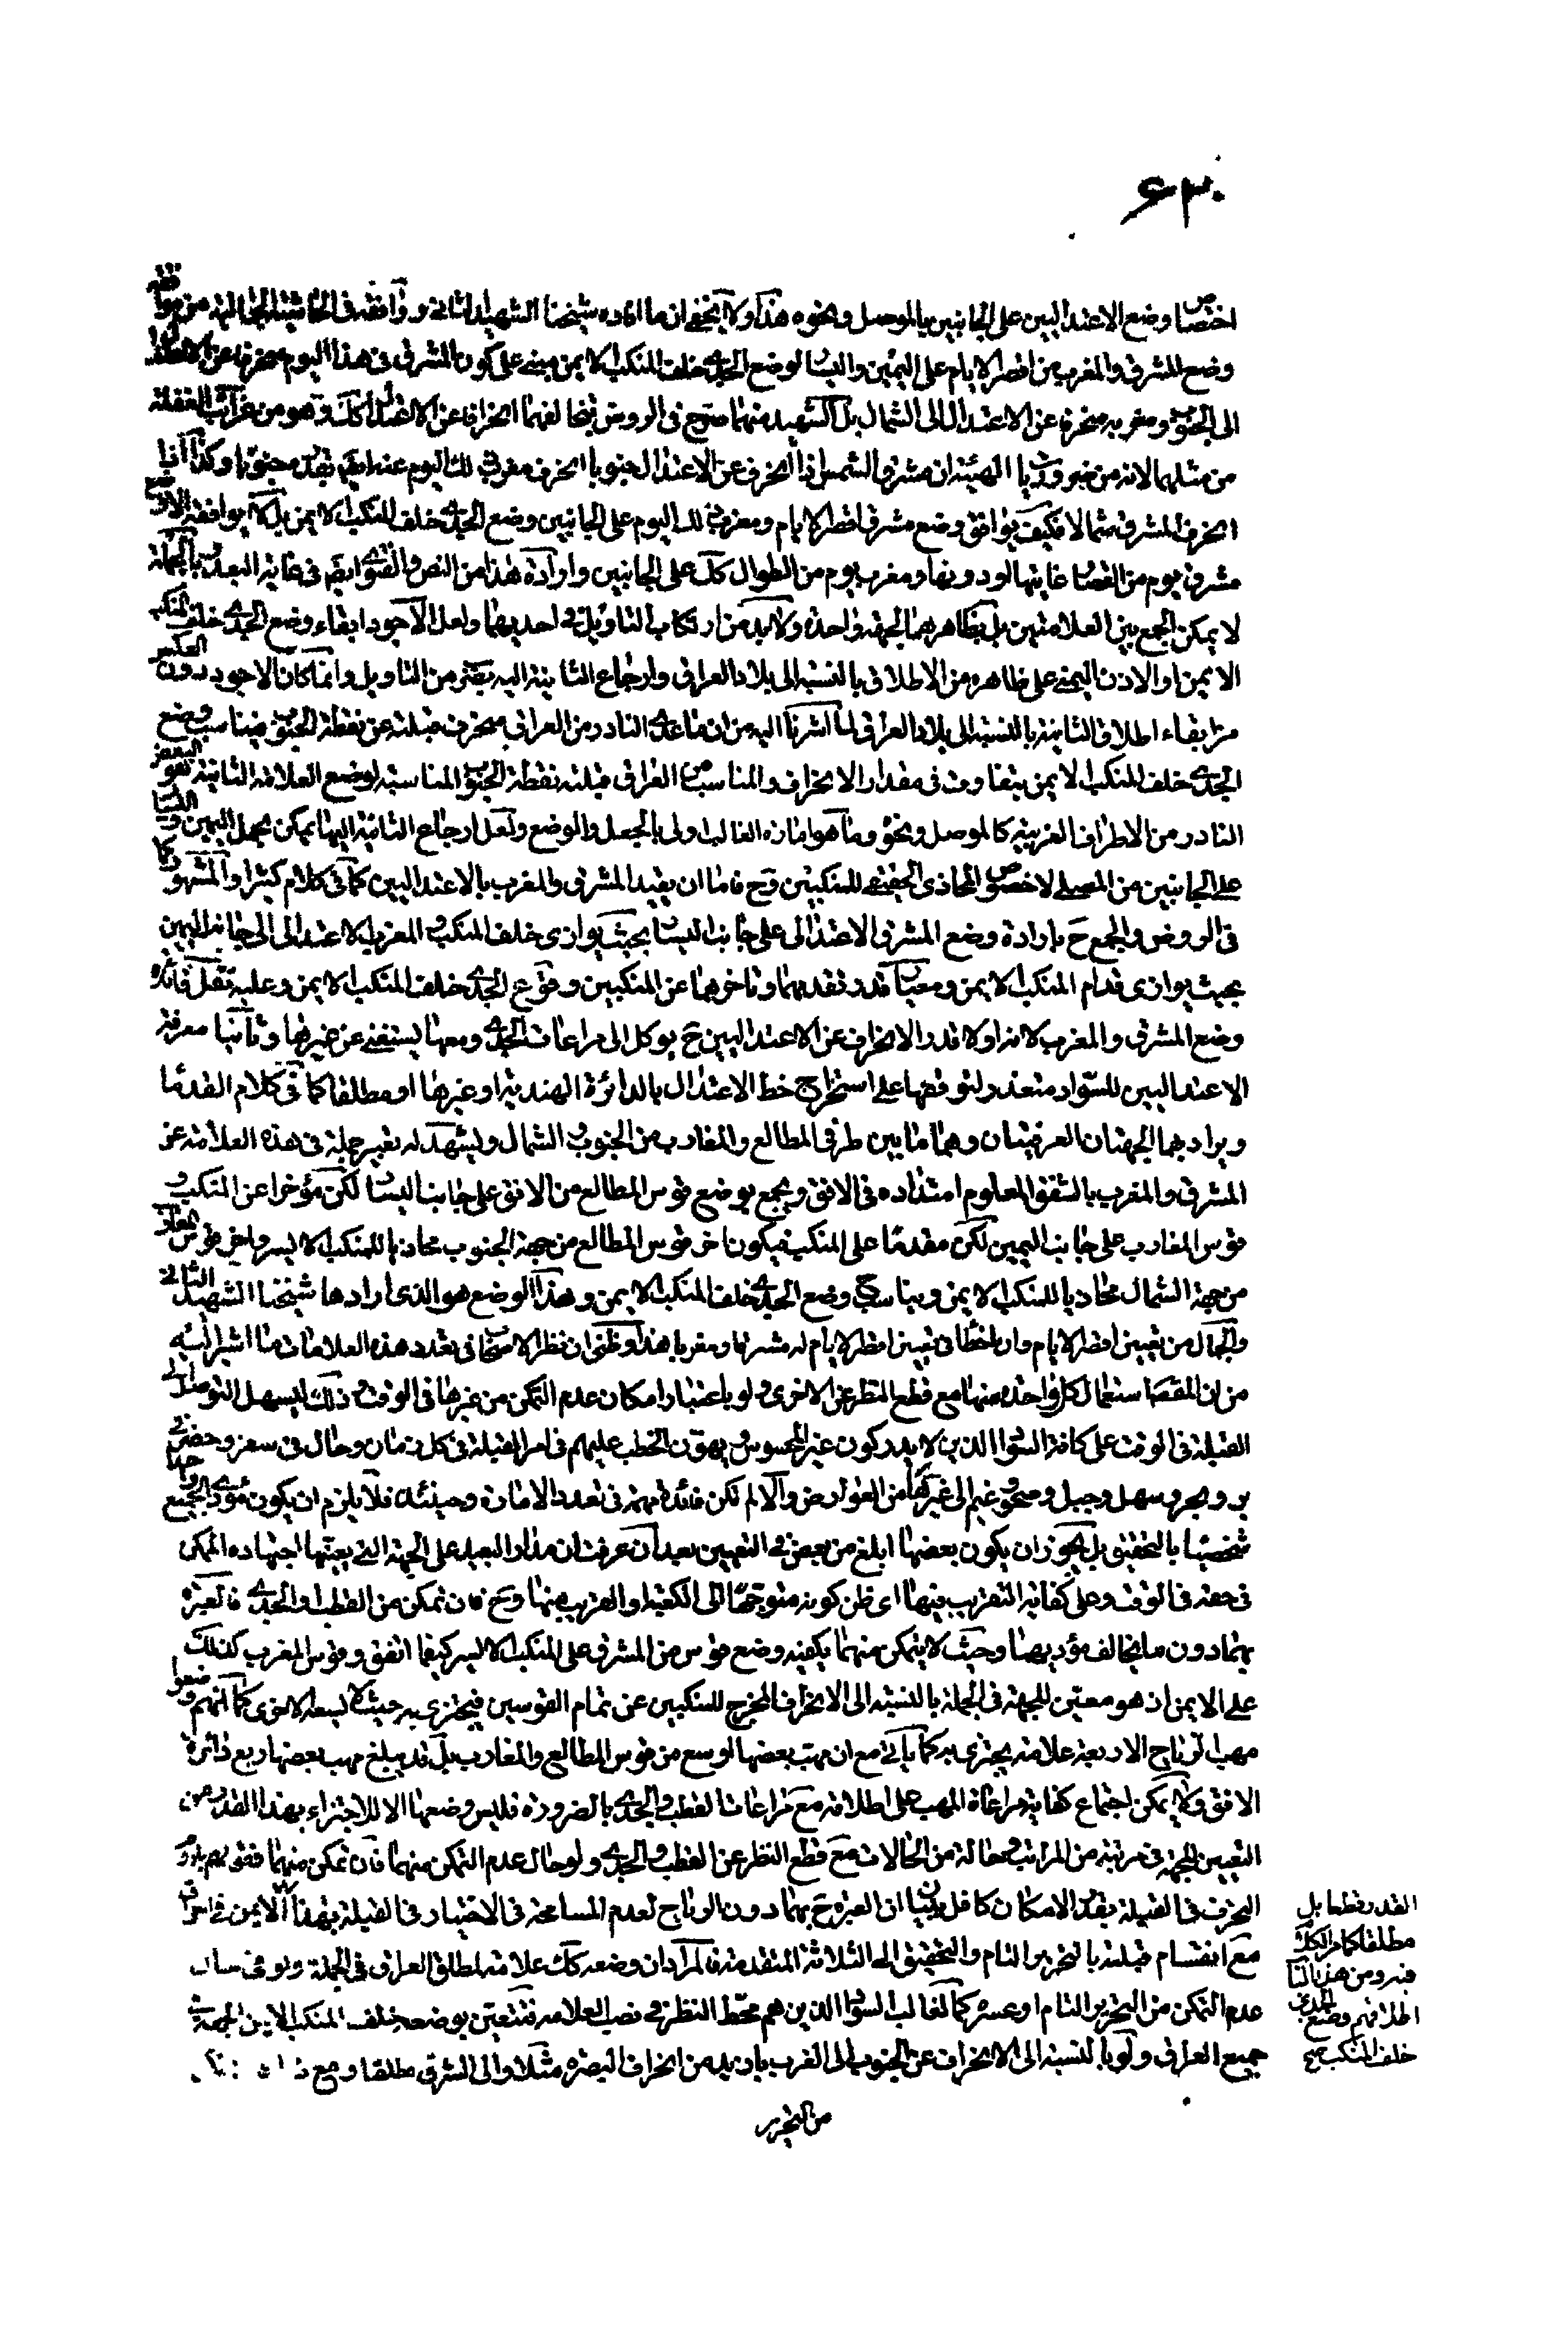 ۶۳۰
اختصاص وضع الاعتدالیین علی الجانبین بالموصل ونحوه هذا ولا یخفی ان ما افاده شیخنا الشهید الثانی ووافقه فی الحاشیة من موافقة
وضع المشرق والمغرب من اقصر الایام علی الیمین والیسار لوضع الجدی خلف المنکب الایمن مبنی علی کون المشرق فی هذا الیوم منحرفا عن الاعتدال
الی الجنوب ومغربه منحرف عن الاعتدال الی الشمال بل الشهید منهما صرح فی الروض بتخالفهما انحرافا عن الاعتدال کک وهو من غرائب الغفلة
من مثلهما لانه من ضروریات الهیئة ان مشرق الشمس اذا انحرف عن الاعتدال جنوبا انحرف مغرب ذلک الیوم عنه ایضا بقدره جنوبا وکذا اذا
انحرف المشرق شمالا فکیف یوافق وضع مشرق اقصر الایام ومغرب ذلک الیوم علی الجانبین وضع الجدی خلف المنکب الایمن بل لا یوافقه الا وضع
مشرق یوم من القصار غایتها او دونها ومغرب یوم من الطوال کک علی الجانبین وارادة هذا من النص والفتوی ایضا فی غایة البعد وبالجملة
لا یمکن الجمع بین العلامتین بل بظاهرهما لجهة واحدة ولا بد من ارتکاب التاویل فی احدیهما ولعل الاجود ابقاء وضع الجدی خلف المنکب
الایمن او الاذن الیمنی علی ظاهره من الاطلاق بالنسبة الی بلاد العراق وارجاع الثانیة الیه بضرب من التاویل وانما کان الاجود دون العکس
من ابقاء اطلاق الثانیة بالنسبة الی بلاد العراق لما اشرنا الیه من ان ما عدی النادر من العراق منحرف قبلته عن نقطة الجنوب فیناسب وضع
الجدی خلف المنکب الایمن بتفاوت فی مقدار الانحراف والمناسب من العراق قبلته نقطة الجنوب المناسبة لوضع العلامة الثانیة هو البعض
النادر من الاطراف الغربیة کالموصل ونحوه وما هو امارة الغالب اولی بالجعل والوضع ولعل ارجاع الثانیة الیها یمکن بجعل الیمین والیسار
علی الجانبین من المصلی لا خصوص المحاذی الحقیقی للمنکبین وح فاما ان یقید المشرق والمغرب بالاعتدالیین کما فی کلام کثیر او المشهور کما
فی الروض والجمع ح بارادة وضع المشرق الاعتدالی علی جانب الیسار بحیث یوازی خلف المنکب والمغرب الاعتدالی الی جانب الیمین
بحیث یوازی قدام المنکب الایمن ومعیار قدر تقدیمها وتاخرهما عن المنکبین وقوع الجدی خلف المنکب الایمن وعلیه تقل فائدة
وضع المشرق والمغرب لانه اولا قدر الانحراف عن الاعتدالیین ح یوکل الی مراعات الجدی ومعها یستغنی عن غیرها وثانیا معرفة
الاعتدالیین للسواد متعذر لتوقفها علی استخراج خط الاعتدال بالدائرة الهندیة او غیرها او مطلقا کما فی کلام القدماء
ویراد بهما الجهتان العرفیتان وهما ما بین طرفی المطالع والمغارب من الجنوب والشمال ویشهد له تعبیر جملة فی هذه العلامة عن
المشرق والمغرب بالشفق المعلوم امتداده فی الافق ویجمع بوضع قوس المطالع من الافق علی جانب الیسار لکن مؤخرا عن المنکب و
قوس المغارب علی جانب الیمین لکن مقدما علی المنکب فیکون اخر قوس المطالع من جهة الجنوب محاذیا للمنکب الایسر واخر قوس المغارب
من جهة الشمال محاذیا للمنکب الایمن ویناسب ح وضع الجدی خلف المنکب الایمن وهذا الوضع هو الذی ارادها شیخنا الشهید الثانی
والجمال من تعیین اقصر الایام وان اخطأ فی تعیین اقصر الایام له مشرقا ومغربا هذا وظنی ان نظر الاصحاب فی تعدد هذه العلامات ما اشیر الیه
من ان المقصد استعمال کل واحدة منها مع قطع النظر عن الاخری ولو باعتبار امکان عدم التمکن من غیرها فی الوقت وذلک لیسهل التوصل الی
القبلة فی الوقت علی کافة السواد الذین لا یدرکون غیر المحسوس ویهون الخطب علیهم فی امر القبلة فی کل زمان وحال فی سفر وحضر فی
بر وبحر وسهل وجبل وصحو وغیم الی غیرها من العوارض والا لم تکن فائدة مهمة فی تعدد الامارة وحینئذ فلا یلزم ان یکون مؤدی الجمیع واحدا
شخصیا بالتحقیق بل یجوز ان یکون بعضها ابلغ من بعض فی التعیین بعد ان عرفت ان مدار البعید علی الجهة التی یعینها اجتهاده الممکن
فی حقه فی الوقت وعلی کفایة التقریب فیها ای ظن کونه متوجها الی الکعبة او القریب منها وح فان تمکن من القطب والجدی فالعبرة
بهما دون ما یخالف مؤدیهما وحیث لا یتمکن منهما یکفیه وضع قوس من المشرق علی المنکب الایسر کیفما اتفق وقوس المغرب کذلک
علی الایمن اذ هو معین للجهة فی الجملة بالنسبة الی الانحراف المخرج للمنکبین عن تمام القوسین فیجتزی به حیث لا یسعه الاخری کما انهم وضعوا
مهب الریاح الاربعة علامة یجتزی به کما یاتی مع ان مهب بعضها اوسع من قوس المطالع والمغارب بل قد یبلغ مهب بعضها ربع دائرة
الافق ولا یمکن اجتماع کفایة مراعاة المهب علی اطلاقه مع مراعات القطب والجدی بالضرورة فلیس وضعها الا للاجتزاء بهذا القدر من
التعیین للجهة فی مرتبة من المراتب وحالة من الحالات مع قطع النظر عن القطب والجدی ولو حال عدم التمکن منهما فان تمکن منهما
التحرف فی القبلة بقدر الامکان کافل ببیان ان العبرة ح بهما دون الریاح لعدم المسامحة فی الاختیار فی القبلة بهذا
مع انقسام قبلته بالتحریر التام والتحقیق الی الثلاثة المتقدمة فالمراد ان وضعه کک علامة لمطلق العراق فی الجملة ولو فی
عدم التمکن من التحریر التام او عسره کما لغالب السواد الذین هم محط النظر فی نصب العلامة فتتعین بوضعه خلف المنکب الایمن الجهة
جمیع العراق ولو بالنسبة الی الانحراف عن الجنوب الی الغرب بازید من انحراف البصرة مثلا والی الشرق مطلقا ومع
من التحریر
القدر قطعا بل
مطلقا کما مر الکلام
فیه ومن هذا
اطلاقهم وضع الجدی
خلف المنکب صح